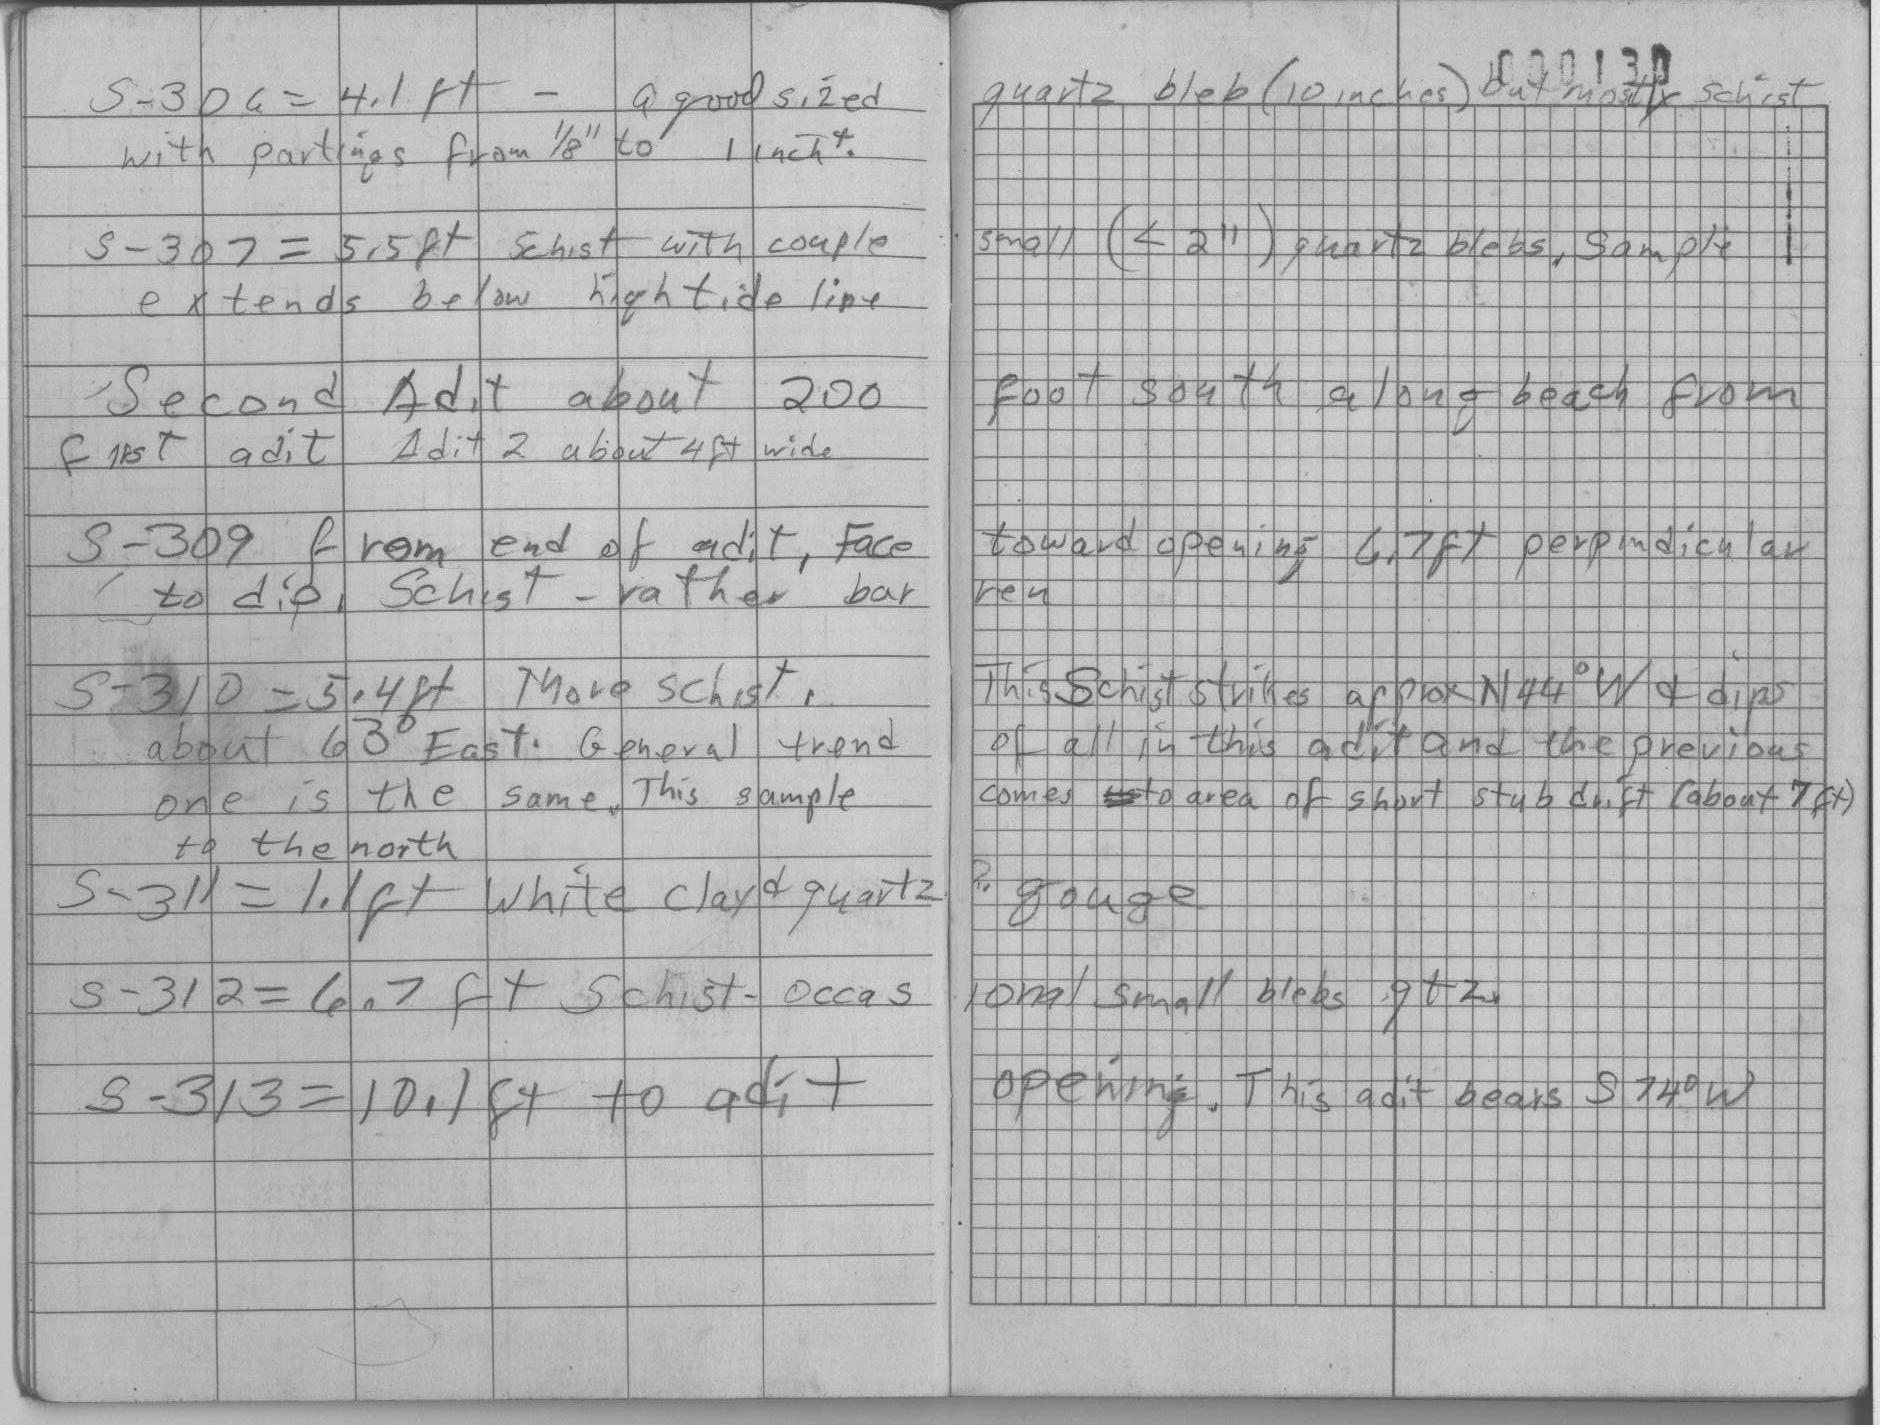 000130
S-306 = 4.1 ft - a good sized quartz bleb (10 inches) but mostly schist
with partings from 1/8" to 1 inch+.
S-307 = 5.5 ft Schist with couple small (< 2") quartz blebs. Sample
extends below high tide line
Second Adit about 200 foot south along beach from
first adit Adit 2 about 4 ft wide
S-309 from end of adit, Face toward opening 6.7 ft perpindicular
to dip, Schist - rather barren
S-310 = 5.4 ft More schist. This Schist strikes approx N44°W & dips
about 63° East. General trend of all in this adit and the previous
one is the same. This sample comes to area of short stub drift (about 7 ft)
to the north
S-311 = 1.1 ft White clay & quartz ? gouge
S-312 = 6.7 ft Schist - occasional small blebs qtz.
S-313 = 10.1 ft to adit opening. This adit bears S 74° W